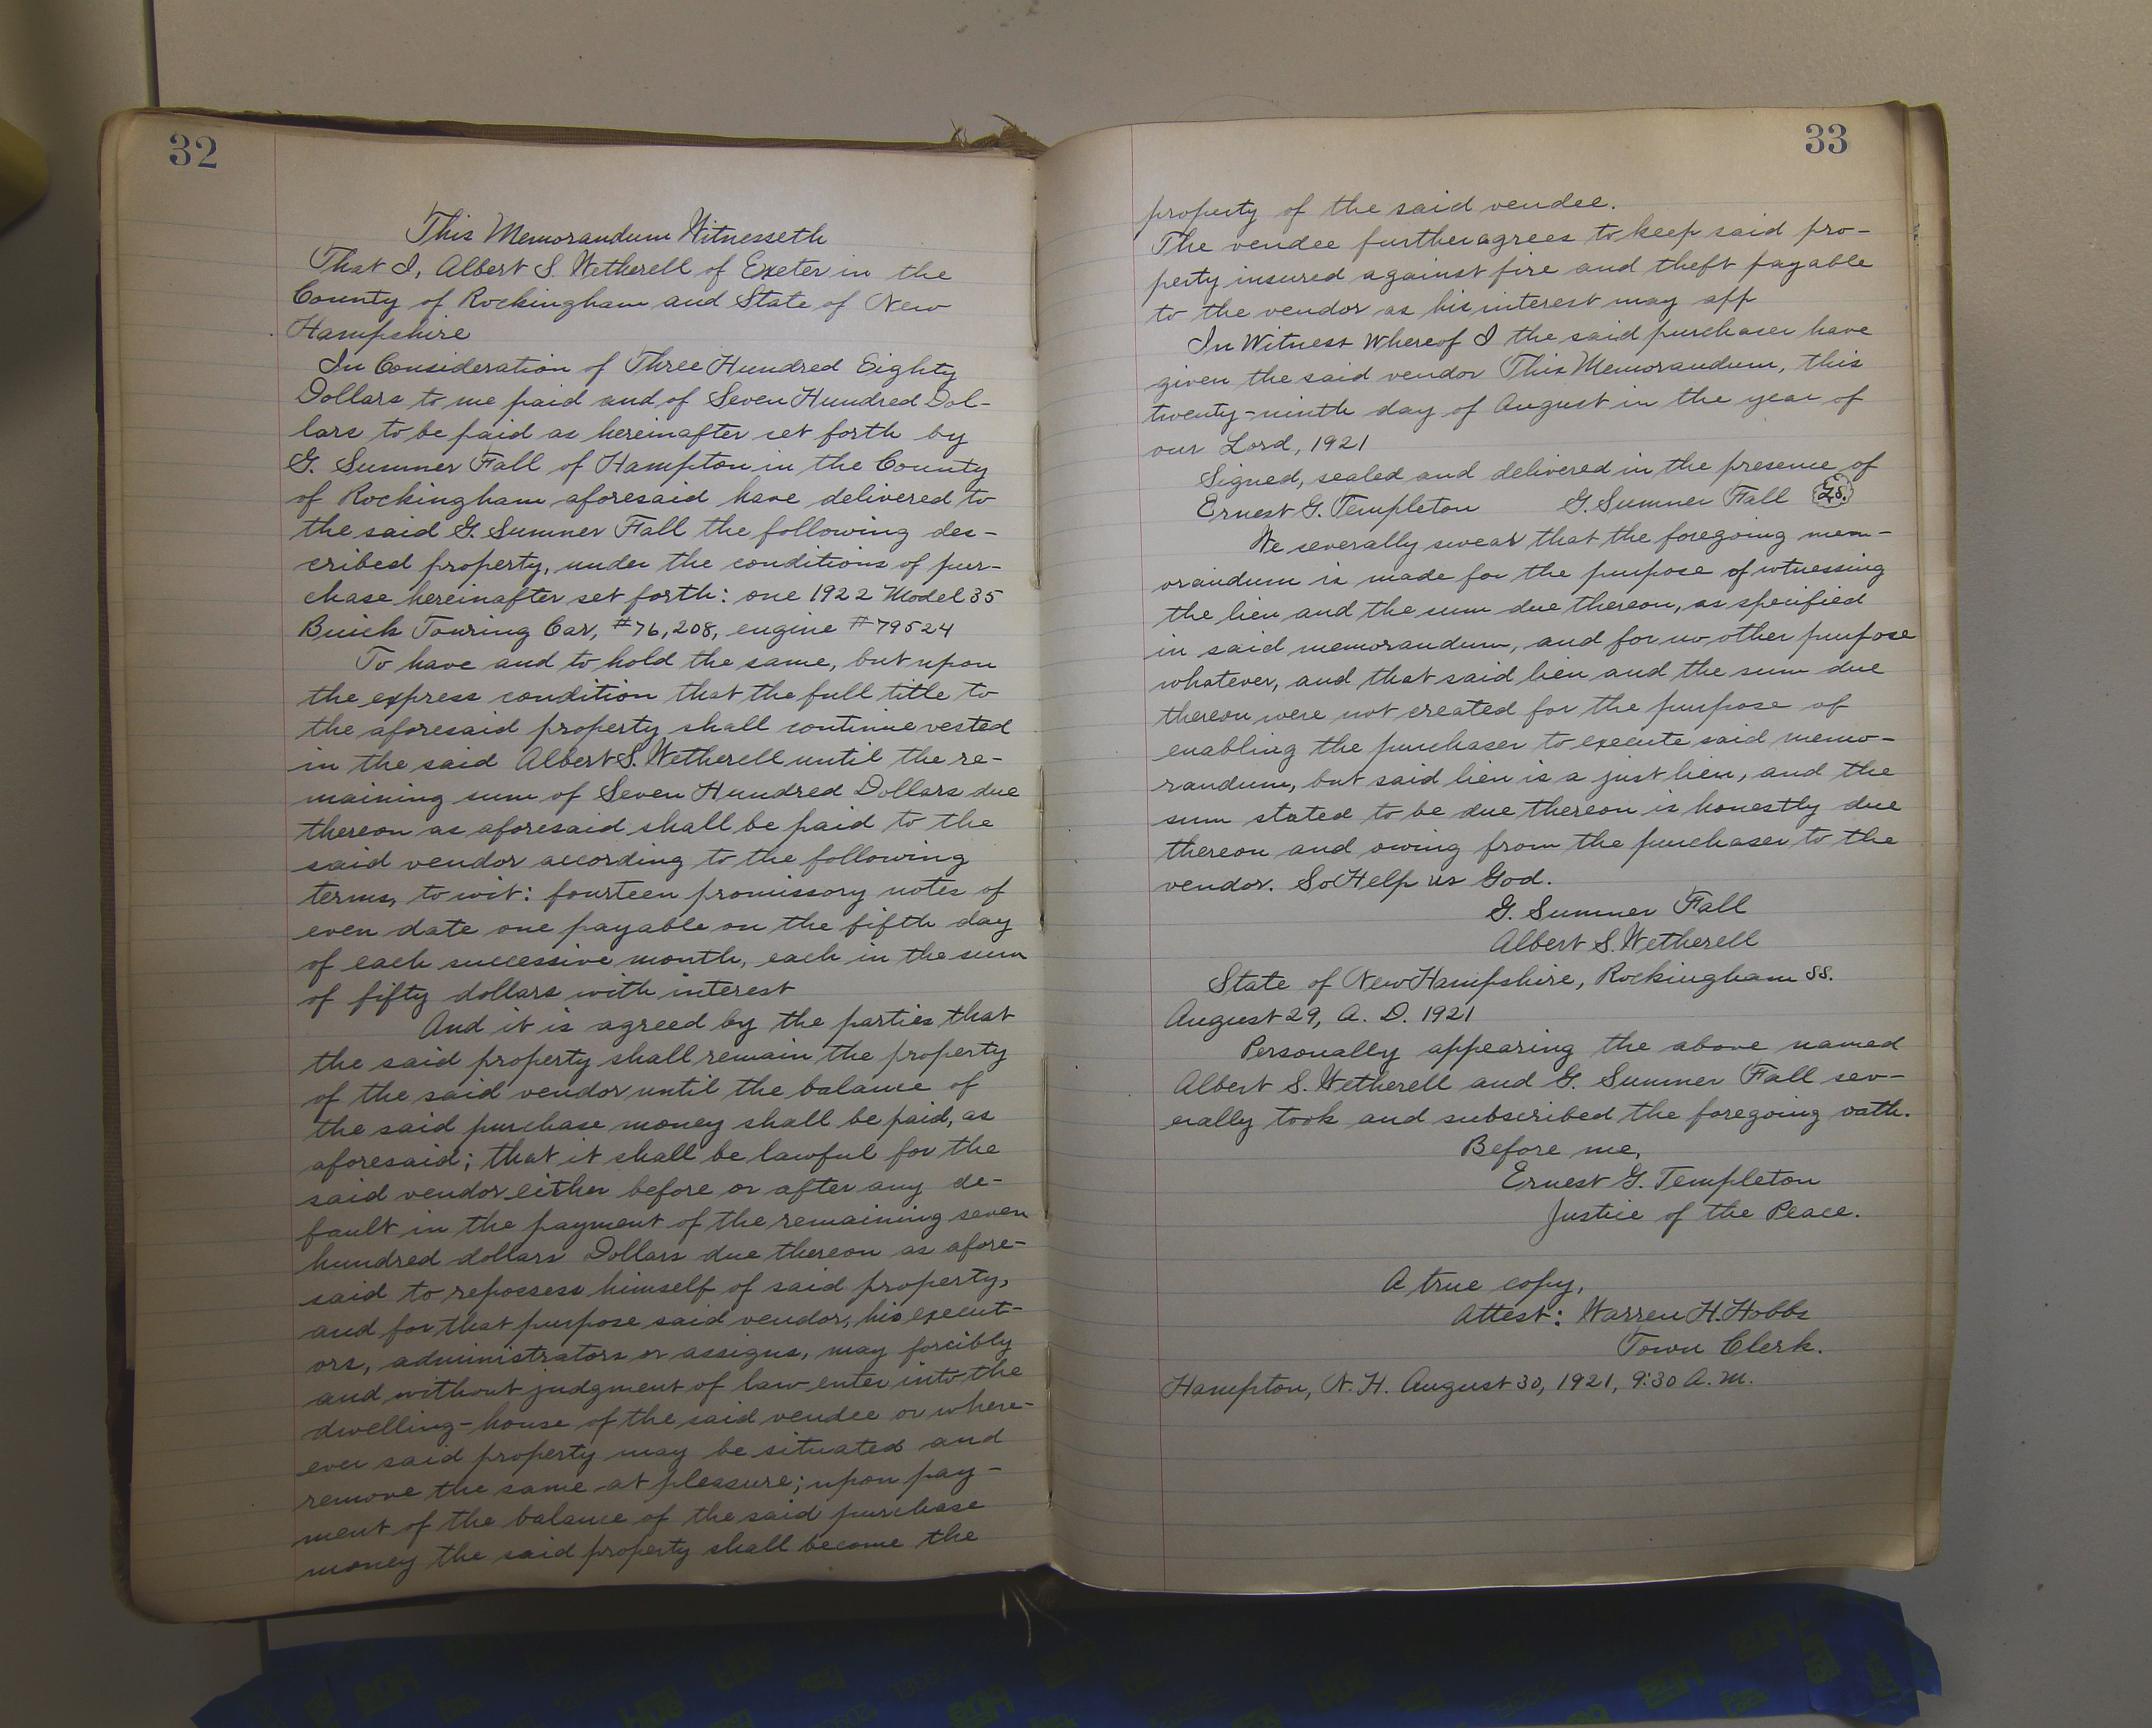 32
This Memorandum Witnesseth
That I, Albert S. Wetherell of Exeter in the
County of Rockingham and State of New
Hampshire
In Consideration of Three Hundred Eighty
Dollars to me paid and of Seven Hundred Dol-
lars to be paid as hereinafter set forth by
G. Sumner Fall of Hampton in the County
of Rockingham aforesaid have delivered to
the said G. Sumner Fall the following des-
cribed property, under the conditions of pur-
chase hereinafter set forth: one 1922 Model 35
Buick Touring Car, #76,208, engine #79524
To have and to hold the same, but upon
the express condition that the full title to
the aforesaid property shall continue vested
in the said Albert S. Wetherell until the re-
maining sum of Seven Hundred Dollars due
thereon as aforesaid shall be paid to the
said vendor according to the following
terms, to wit: fourteen promissory notes of
even date one payable on the fifth day
of each successive month, each in the sum
of fifty dollars with interest
And it is agreed by the parties that
the said property shall remain the property
of the said vendor until the balance of
the said purchase money shall be paid, as
aforesaid; that it shall be lawful for the
said vendor either before or after any de-
fault in the payment of the remaining seven
hundred dollars Dollars due thereon as afore-
said to repossess himself of said property,
and for that purpose said vendor, his execut-
ors, administrators or assigns, may forcibly
and without judgment of law enter into the
dwelling-house of the said vendee or where-
ever said property may be situated and
remove the same at pleasure; upon pay-
ment of the balance of the said purchase
money the said property shall become the
33
property of the said vendee.
The vendee further agrees to keep said pro-
perty insured against fire and theft payable
to the vendor as his interest may app
In Witness Whereof I the said purchaser have
given the said vendor This Memorandum, this
twenty-ninth day of August in the year of
our Lord, 1921
Signed, sealed and delivered in the presence of
Ernest G. Templeton G. Sumner Fall L.S.
We severally swear that the foregoing mem-
orandum is made for the purpose of witnessing
the lien and the sum due thereon, as specified
in said memorandum, and for no other purpose
whatever, and that said lien and the sum due
thereon were not created for the purpose of
enabling the purchaser to execute said memo-
randum, but said lien is a just lien, and the
sum stated to be due thereon is honestly due
thereon and owing from the purchaser to the
vendor. So Help us God.
G. Sumner Fall
Albert S. Wetherell
State of New Hampshire, Rockingham SS.
August 29, A. D. 1921
Personally appearing the above named
Albert S. Wetherell and G. Sumner Fall sev-
erally took and subscribed the foregoing oath.
Before me,
Ernest G. Templeton
Justice of the Peace.
A true copy,
Attest: Warren H. Hobbs
Town Clerk.
Hampton, N. H. August 30, 1921, 9:30 A. M.